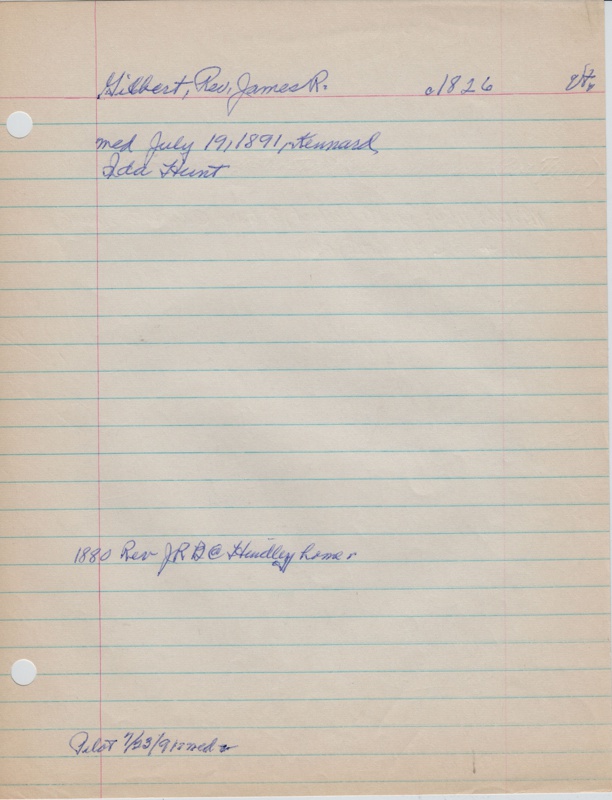 Gilbert, Rev, James R. c1826 Vt
med July 19, 1891, Kennard,
Ida Hunt
1880 Rev JRG @ Hindley home
Pilot 7/23/91 med